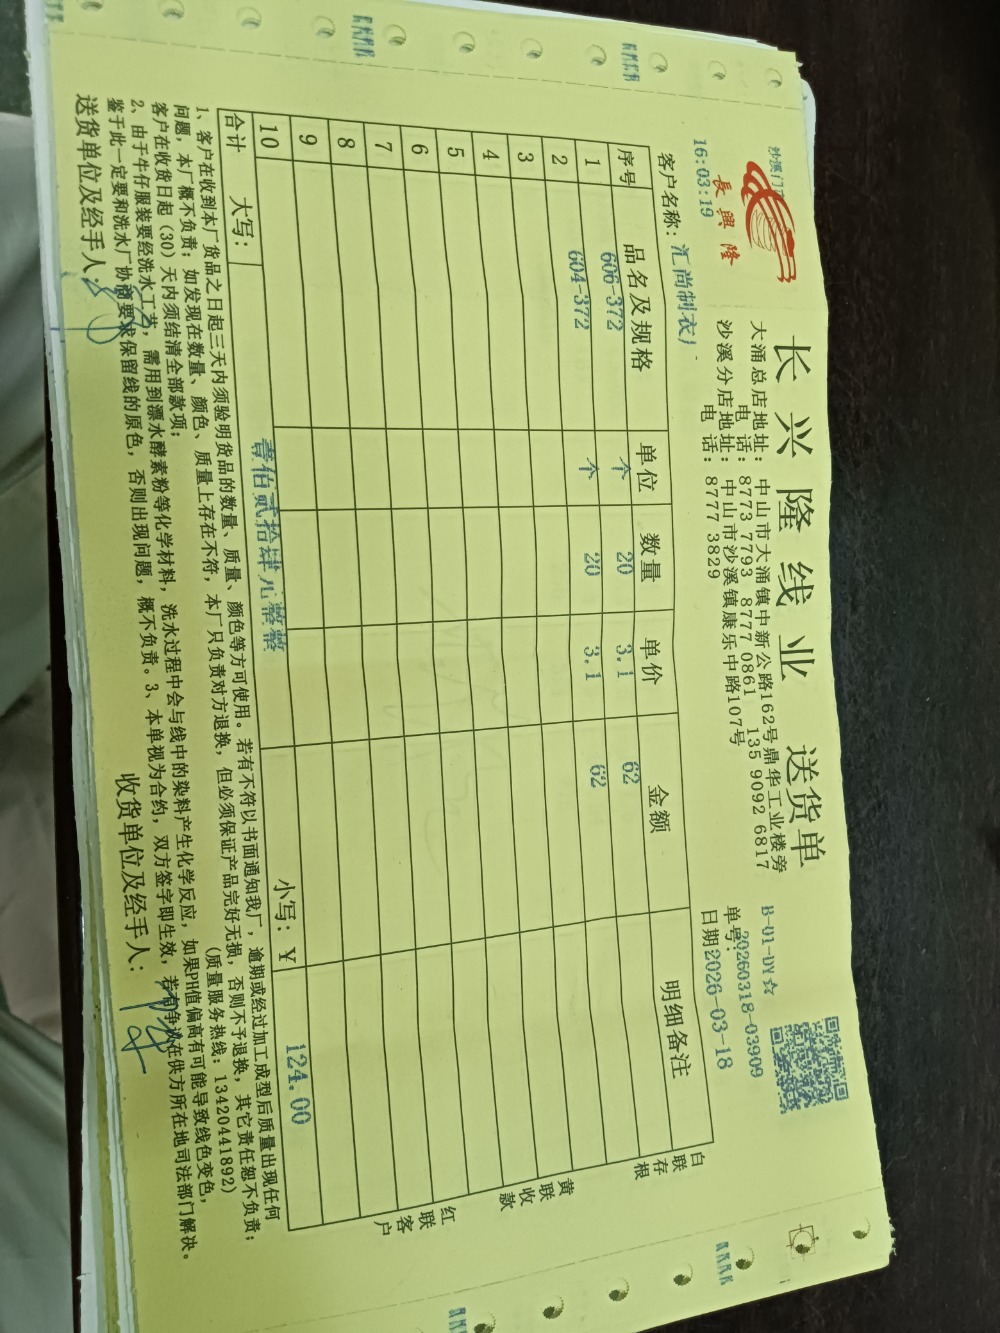 長興隆
16:03:19
长兴隆线业 送货单
大涌总店地址: 中山市大涌镇中新公路162号鼎华工业楼旁
电 话: 8773 7793 8777 0861 135 9092 6817
沙溪分店地址: 中山市沙溪镇康乐中路107号
电 话: 8777 3829
B-01-DY☆
单号: 20260318-03909
日期 2026-03-18
客户名称: 汇尚制衣厂
序号 品名及规格 单位 数量 单价 金额 明细备注
1 606-372 个 20 3.1 62
2 604-372 个 20 3.1 62
3
4
5
6
7
8
9
10
合计 大写: 壹佰贰拾肆元整整 小写: ¥ 124.00
白联存根
黄联收款
红联客户
1、客户在收到本厂货品之日起三天内须验明货品的数量、质量、颜色等方可使用。若有不符以书面通知我厂,逾期或经过加工成型后质量出现任何
问题,本厂概不负责;如发现在数量、颜色、质量上存在不符,本厂只负责对方退换,但必须保证产品完好无损,否则不予退换,其它责任恕不负责;
客户在收货日起(30)天内须结清全部款项; (质量服务热线: 13420441892)
2、由于牛仔服装要经洗水工艺,需用到漂水酵素粉等化学材料,洗水过程中会与线中的染料产生化学反应,如果PH值偏高有可能导致线色变色,
鉴于此一定要和洗水厂协商要求保留线的原色,否则出现问题,概不负责。3、本单视为合约,双方签字即生效,若有争议在供方所在地司法部门解决。
送货单位及经手人: 收货单位及经手人: